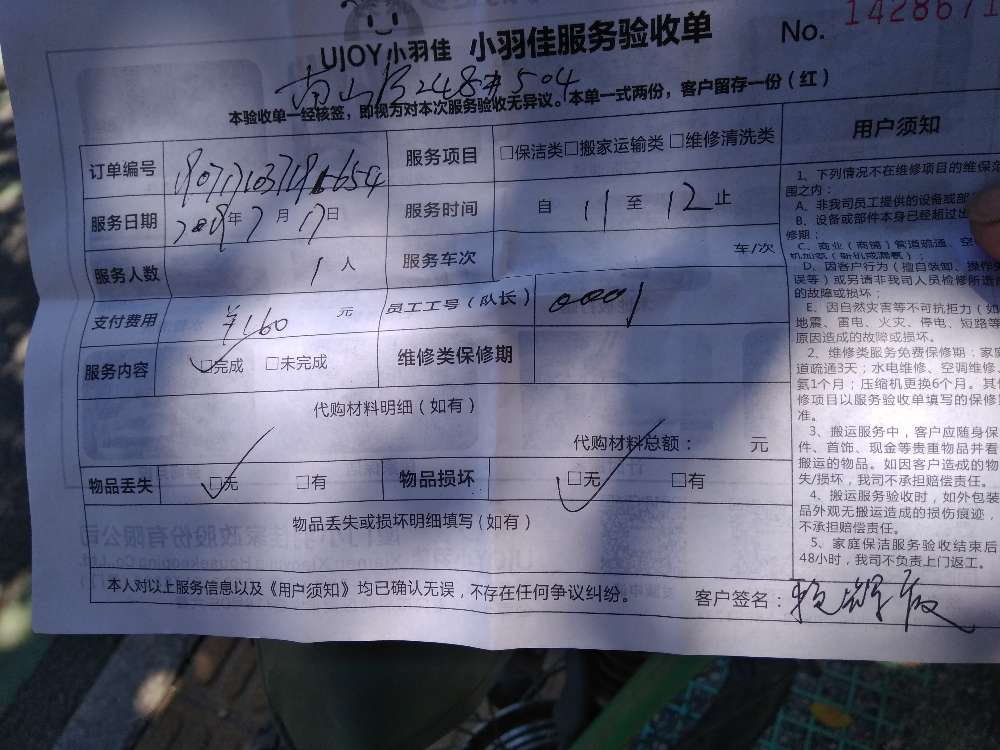 UJOY小羽佳 小羽佳服务验收单 No. 1428671
248#504
本验收单一经核签，即视为对本次服务验收无异议。本单一式两份，客户留存一份（红）
订单编号 服务项目 □保洁类□搬家运输类□维修清洗类
服务日期 年7月17日 服务时间 自 11 至 12 止
服务人数 1 人 服务车次 车/次
支付费用 ¥160 元 员工工号（队长） 0001
服务内容 □完成 □未完成 维修类保修期
代购材料明细（如有）
代购材料总额： 元
物品丢失 □无 □有 物品损坏 □无 □有
物品丢失或损坏明细填写（如有）
本人对以上服务信息以及《用户须知》均已确认无误，不存在任何争议纠纷。
客户签名：
用户须知
1、下列情况不在维修项目的维保范
围之内：
A、非我司员工提供的设备或部
B、设备或部件本身已经超过出
修期；
C、商业（商铺）管道疏通、空
D、因客户行为（擅自装卸、操作
误等）或另请非我司人员检修所造
的故障或损坏；
E、因自然灾害等不可抗拒力（如
地震、雷电、火灾、停电、短路等
原因造成的故障或损坏。
2、维修类服务免费保修期：家庭
道疏通3天；水电维修、空调维修、
氨1个月；压缩机更换6个月。其他
修项目以服务验收单填写的保修
准。
3、搬运服务中，客户应随身保
件、首饰、现金等贵重物品并看
搬运的物品。如因客户造成的物
失/损坏，我司不承担赔偿责任。
4、搬运服务验收时，如外包装
品外观无搬运造成的损伤痕迹，
不承担赔偿责任。
5、家庭保洁服务验收结束后
48小时，我司不负责上门返工。